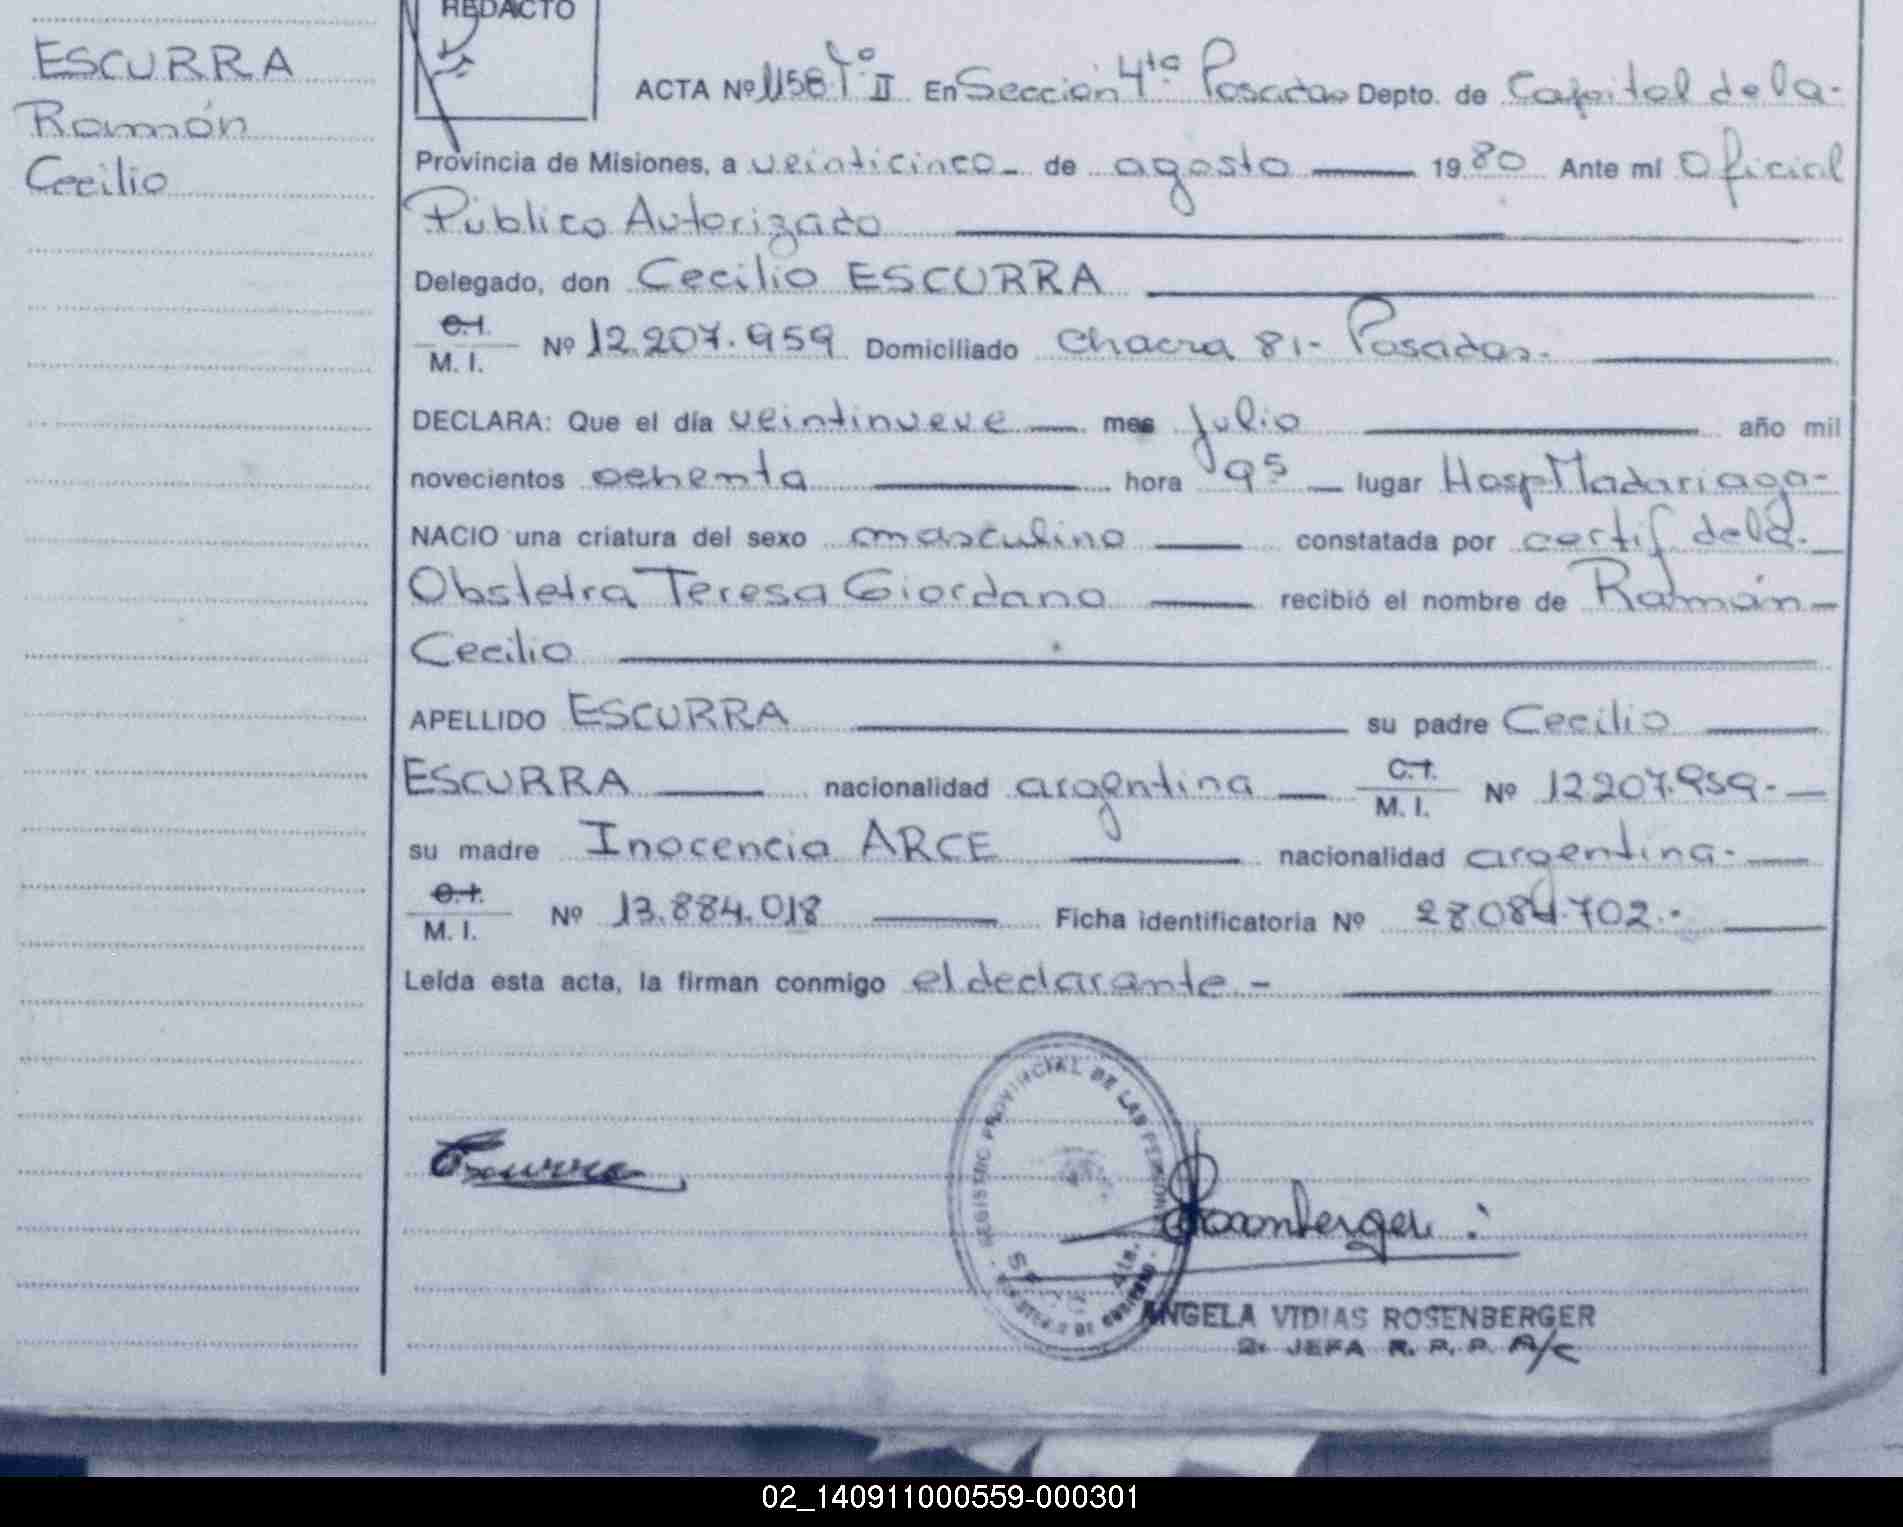 REDACTO
ESCURRA
Ramón
Cecilio
ACTA Nº 1158 Tº II En Sección 4ta Posadas Depto. de Capital de la-
Provincia de Misiones, a veinticinco- de agosto 1980 Ante mi Oficial
Público Autorizado
Delegado, don Cecilio ESCURRA
C.I.
M. I. Nº 12.207.959 Domiciliado chacra 81- Posadas.
DECLARA: Que el día veintinueve mes julio año mil
novecientos ochenta hora 9⁵ lugar Hosp Madariaga-
NACIO una criatura del sexo masculino constatada por certif de la
Obstetra Teresa Giordano recibió el nombre de Ramón
Cecilio
APELLIDO ESCURRA su padre Cecilio
ESCURRA nacionalidad argentina C.I.
M. I. Nº 12207.959.-
su madre Inocencia ARCE nacionalidad argentina.
C.I.
M. I. Nº 13.884.018 Ficha identificatoria Nº 28.084.702.-
Leída esta acta, la firman conmigo el declarante.-
Escurra
REGISTRO PROVINCIAL DE LAS PERSONAS
Rosenberger
ANGELA VIDIAS ROSENBERGER
2ª JEFA R. P. P. A/C
02_140911000559-000301